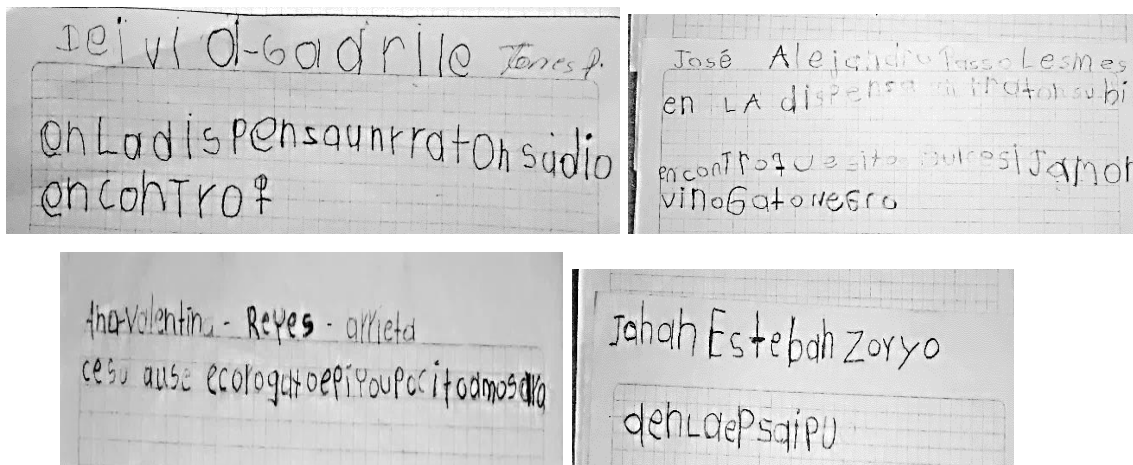 Deivi d-Gadrile Torres P.
enLadispensaunrratonsudio
encontroq
José Alejandro Passo Lesmes
en LA dispensa un rratonsubi
encontroquesito dulcesiJamon
vinoGatoNeGro
Ana-Valentina - Reyes - arrieta
ause
Johan Esteban Zoryo
denLaepsaipu